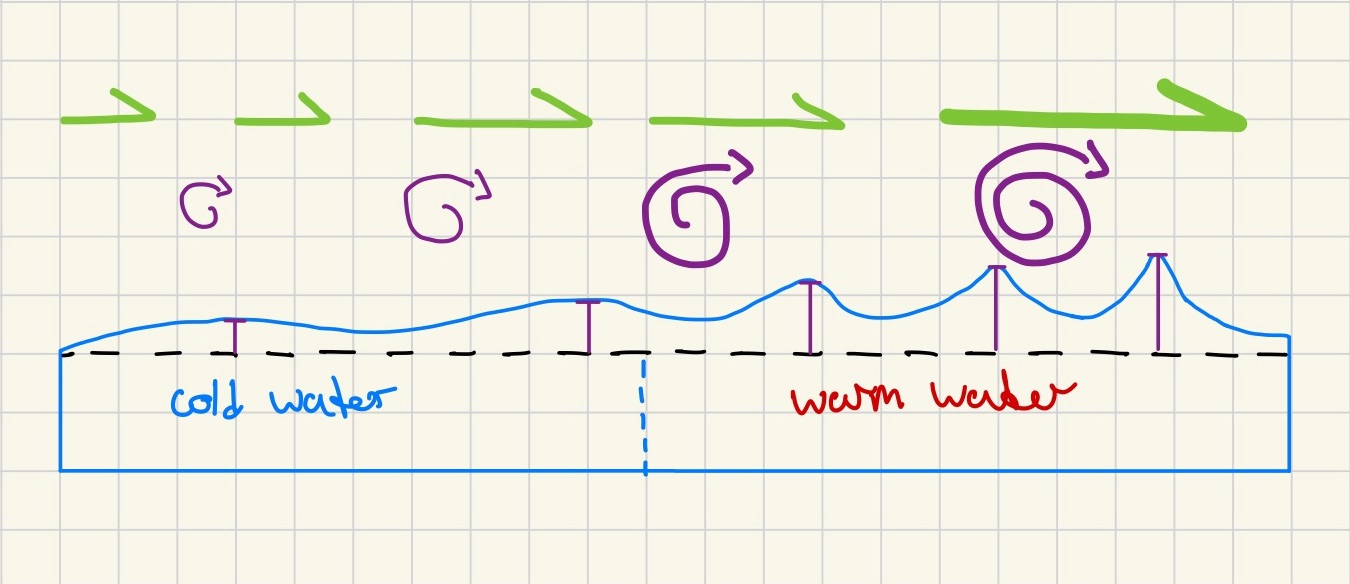 cold water
warm water